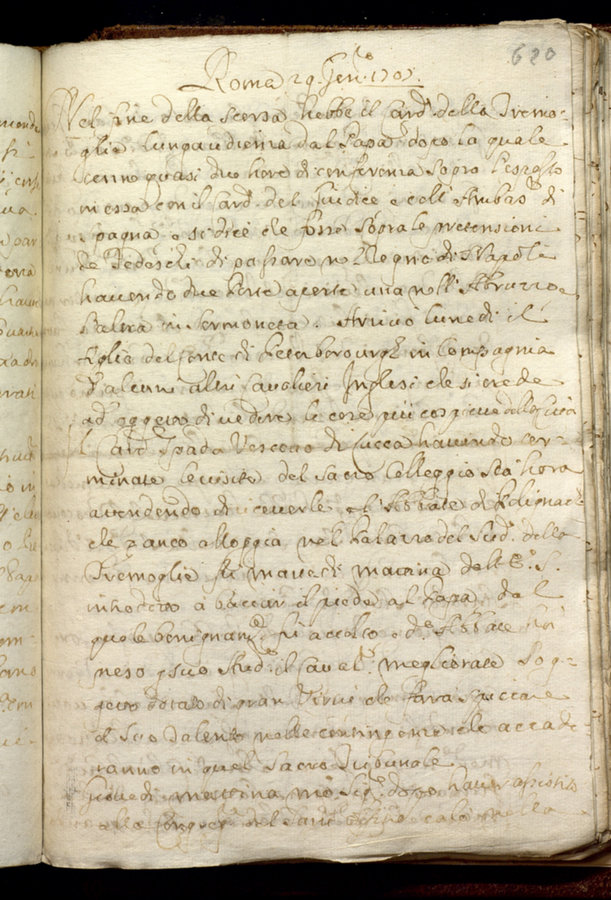 680
Roma 29 Gen.ro 1707.
Nel fine della scorsa hebbe il Card. della Tremo-
glie lunga udienza dal Papa, dopo la quale
tenne quasi due hore di conferenza sopra l'esposto
messa con il Card. del Giudice e coll' Ambas.re di
Spagna, e si dice che fosse sopra le pretensioni
de Tedeschi di passare nel Regno di Napoli
havendo due Porte aperte una nell' Abruzzo e
l'altra in Sermoneta. Arrivò lunedì il
figlio del Conte di Peterborourgh in Compagnia
d'alcuni altri Cavalieri Inglesi che si crede
ad oggetto di vedere le cose più cospicue della Città
Il Card. Spada Vescovo di Lucca havendo ter-
minate le visite del Sacro Colleggio sta hora
attendendo di riceverle, e l'Abbate di Polignac
che anco alloggia nel Palazzo del Sud.o della
Tremoglie fu martedì mattina dall' E. S.
introdotto a baciar il piede al Papa, dal
quale benignam.te fu accolto, e d.o Abbate
preso p suo Aud.re il Caval.r Megliorate Sog-
getto dotato di gran Virtù che farà spiccare
il suo Talento nelle contingenze che accade-
ranno in quel Sacro Tribunale
Giovedì mattina dopo haver assistito
alla Congreg.e del Sant' Offitio calò nella